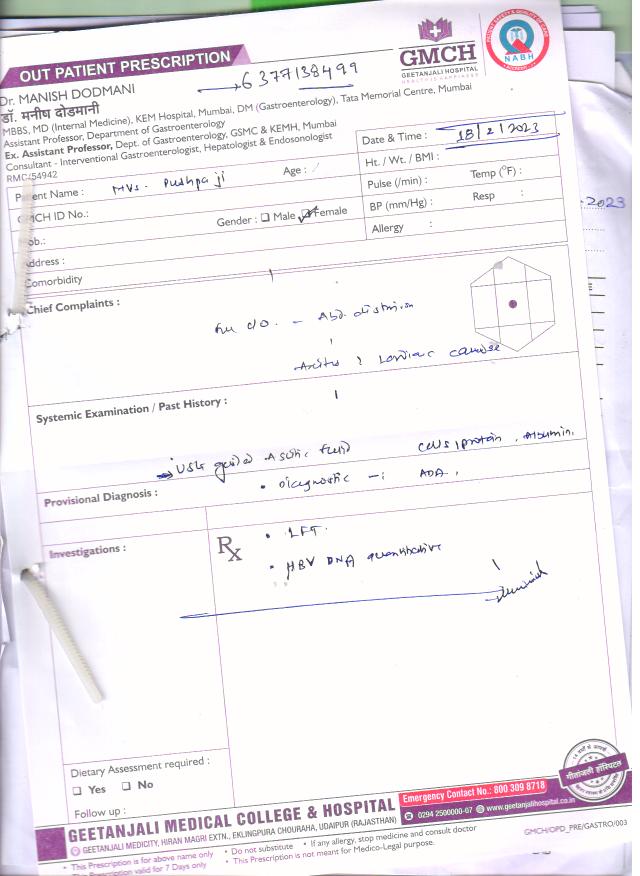 OUT PATIENT PRESCRIPTION
→ 6377138499
GMCH
GEETANJALI HOSPITAL
NABH
Dr. MANISH DODMANI
डॉ. मनीष दोडमानी
MBBS, MD (Internal Medicine), KEM Hospital, Mumbai, DM (Gastroenterology), Tata Memorial Centre, Mumbai
Assistant Professor, Department of Gastroenterology
Ex. Assistant Professor, Dept. of Gastroenterology, GSMC & KEMH, Mumbai
Consultant - Interventional Gastroenterologist, Hepatologist & Endosonologist
RMC/54942
Date & Time : 18/2/2023
Patient Name : Mrs. Pushpa ji Age :
Ht. / Wt. / BMI :
Pulse (/min) : Temp (°F) :
GMCH ID No.: Gender : Male Female
BP (mm/Hg) : Resp :
ob.:
Allergy :
ddress :
Comorbidity
-2023
Chief Complaints :
c/o. - Abd. distension
Systemic Examination / Past History :
→ USG guided Ascitic fluid cells, protein, Albumin.
• Diagnostic -: ADA,
Provisional Diagnosis :
Investigations :
Rx
• LFT.
• HBV DNA quantitative
Dietary Assessment required :
Yes No
Follow up :
गीतांजली हॉस्पिटल
Emergency Contact No.: 800 309 8718
GEETANJALI MEDICAL COLLEGE & HOSPITAL
0294 2500000-07 www.geetanjalihospital.co.in
GEETANJALI MEDICITY, HIRAN MAGRI EXTN., EKLINGPURA CHOURAHA, UDAIPUR (RAJASTHAN)
GMCH/OPD_PRE/GASTRO/003
• This Prescription is for above name only • Do not substitute • If any allergy, stop medicine and consult doctor
Prescription valid for 7 Days only • This Prescription is not meant for Medico-Legal purpose.